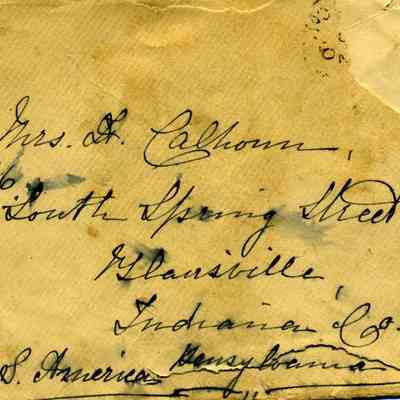 Mrs. H. Calhoun,
South Spring Street
Blairsville,
Indiana Co.
S. America Pensylvania